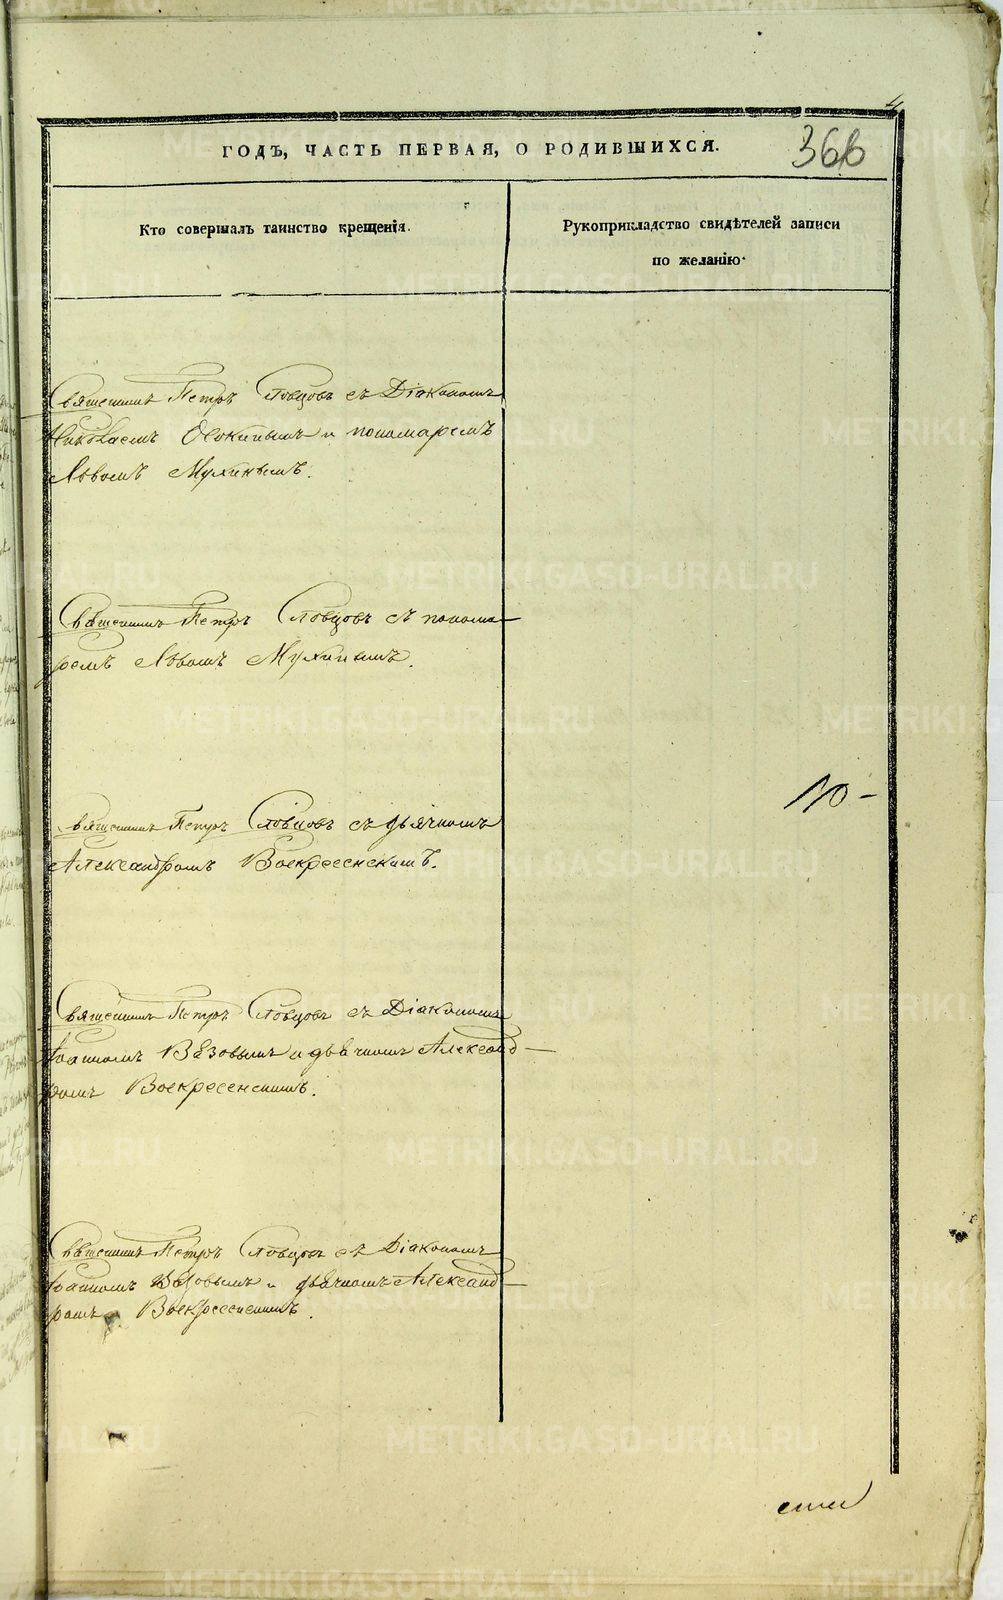 4
ГОДЪ, ЧАСТЬ ПЕРВАЯ, О РОДИВШИХСЯ.
366
Кто совершалъ таинство крещенія.
Рукоприкладство свидѣтелей записи
по желанію.
Священникъ Петръ Словцовъ съ Діакономъ
Николаемъ Осокинымъ и пономаремъ
Львомъ Мухинымъ.
Священникъ Петръ Словцовъ съ понома-
ремъ Львомъ Мухинымъ.
10-
Священникъ Петръ Словцовъ съ дьячкомъ
Александромъ Воскресенскимъ.
Священникъ Петръ Словцовъ съ Діакономъ
Іоанномъ Вязовымъ и дьячкомъ Александ-
ромъ Воскресенскимъ.
Священникъ Петръ Словцовъ съ Діакономъ
Іоанномъ Вязовымъ и дьячкомъ Александ-
ромъ Воскресенскимъ.
METRIKI.GASO-URAL.RU